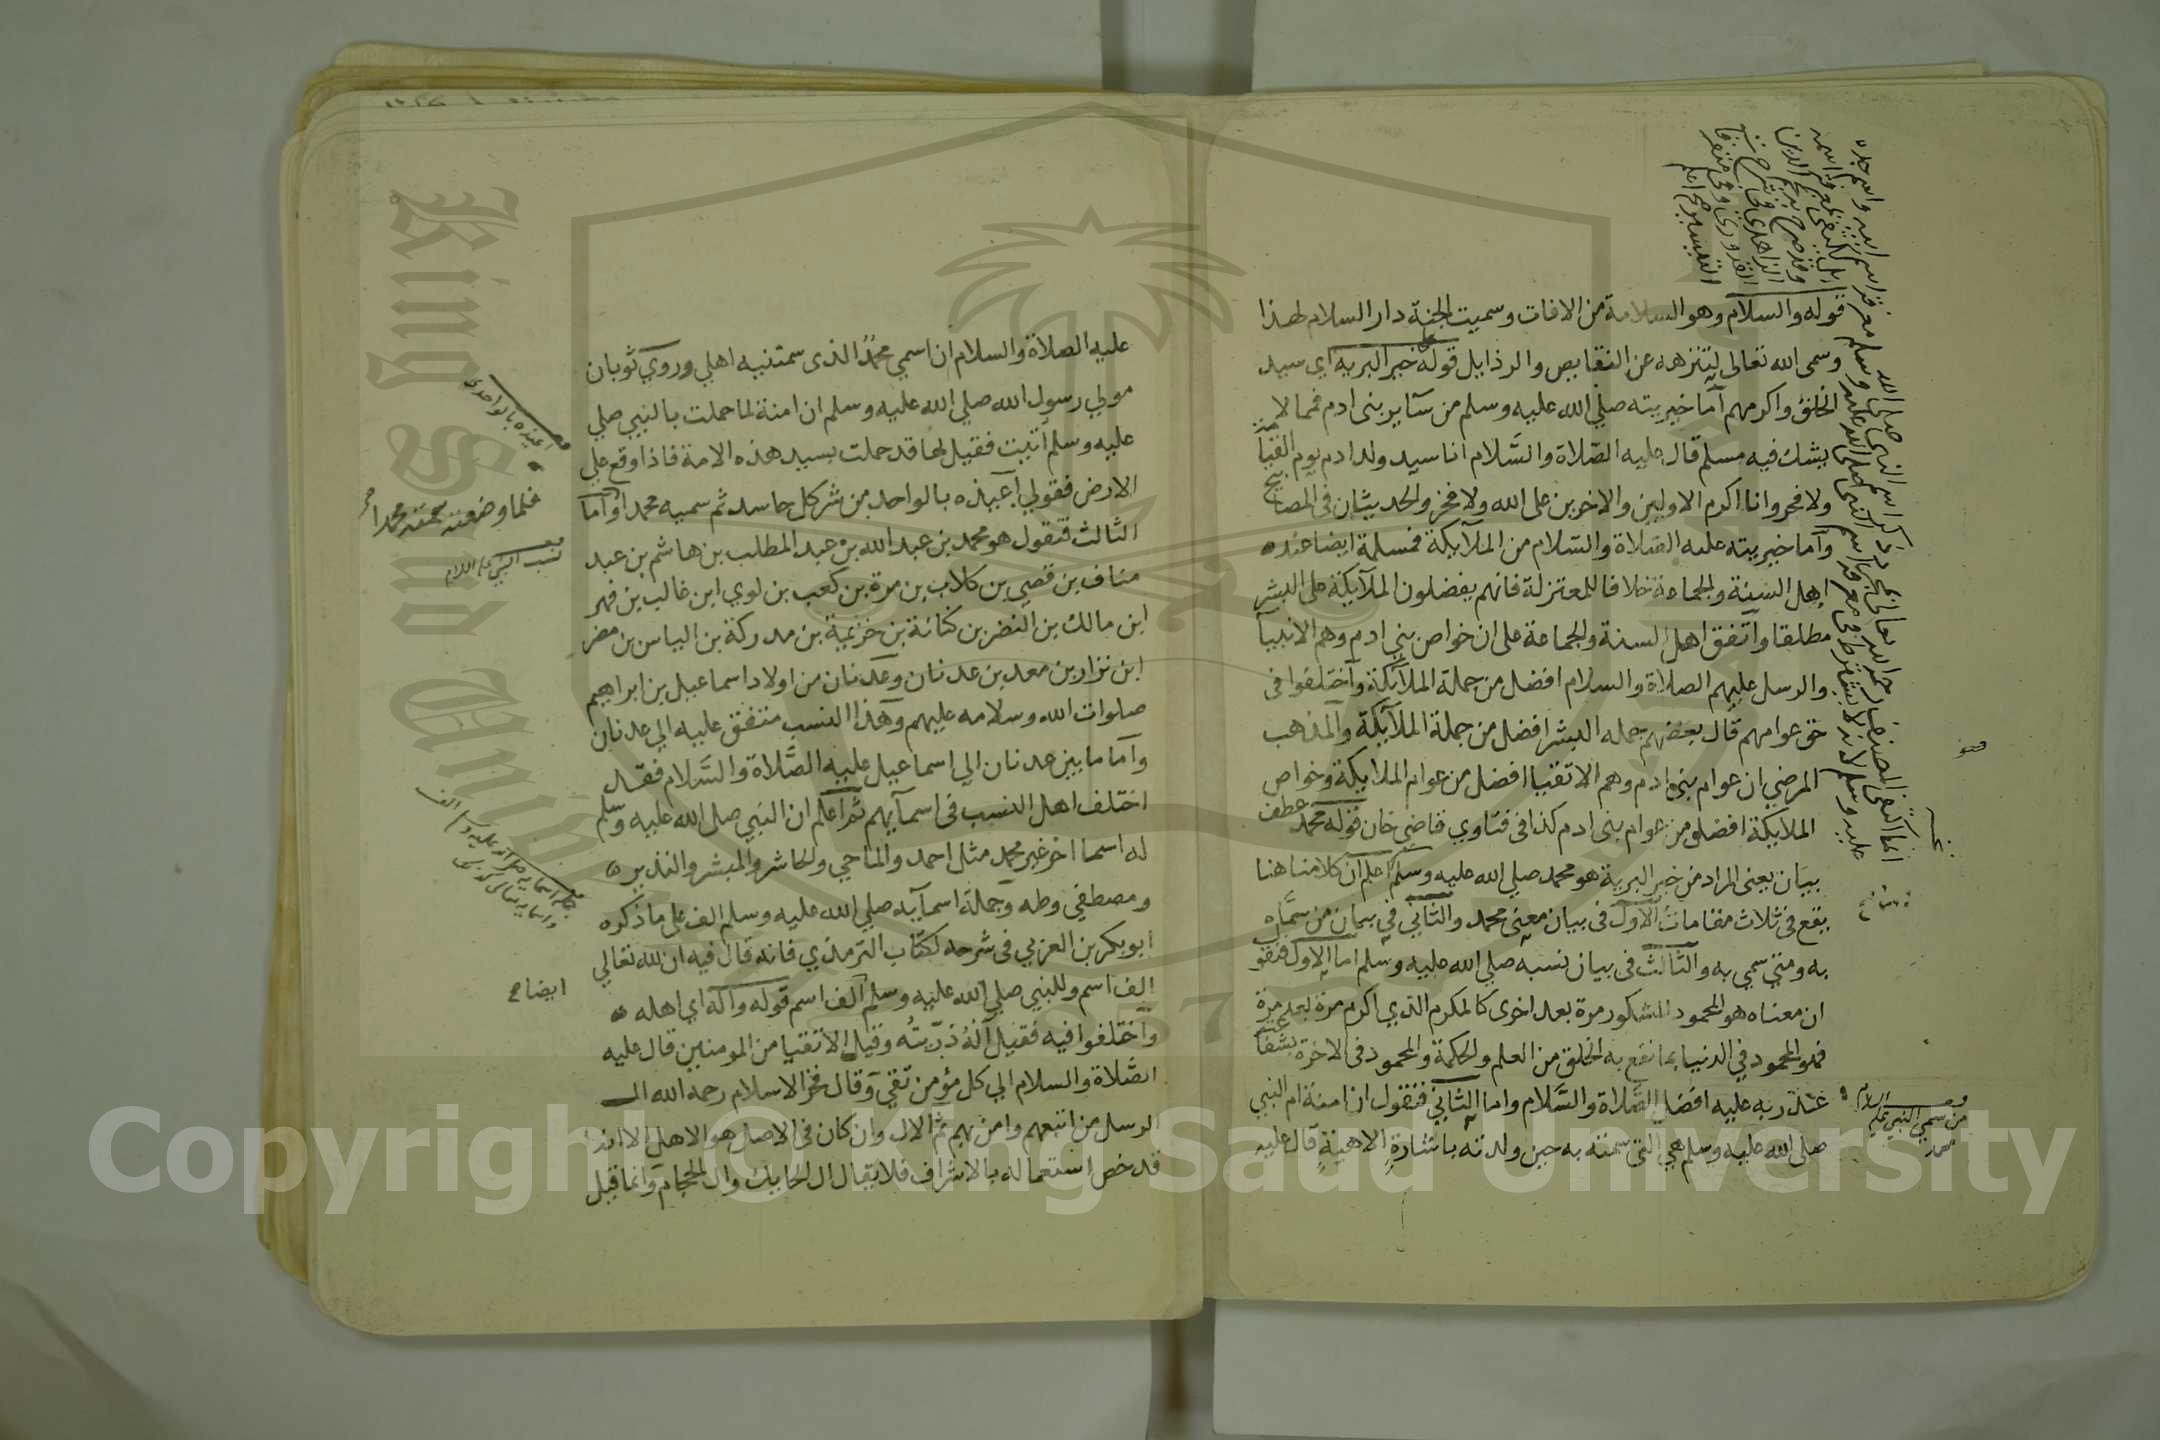 قوله والسلام وهو السلامة من الافات وسميت الجنة دار السلام لهذا
وسمى الله تعالى لتنزهه عن النقايص والرذايل قوله خير البرية اي سيد
الخلق واكرمهم اما خيريته صلي الله عليه وسلم من ساير بنى ادم فمما لا
يشك فيه مسلم قال عليه الصلاة والسلام انا سيد ولد ادم يوم القيامة
ولا فخر وانا اكرم الاولين والاخرين على الله ولا فخر والحديثان في المصابيح
واما خيريته عليه الصلاة والسلام من الملآيكة فمسلمة ايضا عند
اهل السنة والجماعة خلافا للمعتزلة فانهم يفضلون الملآيكة على البشر
مطلقا واتفق اهل السنة والجماعة على ان خواص بني ادم وهم الانبيآ
والرسل عليهم الصلاة والسلام افضل من جملة الملآيكة واختلفوا فى
حق عوامهم قال بعضهم جمله البشر افضل من جملة الملآيكة والمذهب
المرضي ان عوام بنى ادم وهم الاتقيا افضل من عوام الملايكة وخواص
الملايكة افضل من عوام بنى ادم كذا فى فتاوي قاضي خان قوله محمد عطف
بيان يعنى المراد من خير البرية هو محمد صلي الله عليه وسلم اعلم ان كلامنا هنا
يقع فى ثلاث مقامات الاول فى بيان معنى محمد والثاني في بيان من سماه
به ومتي سمي به والثالث فى بيان نسبه صلي الله عليه وسلم اما الاول فنقول
ان معناه هو المحمود المشكور مرة بعد اخرى كالمكرم الذي اكرم مرة بعد مرة
فهو المحمود في الدنيا بما نفع به الخلق من العلم والحكمة والمحمود فى الاخرة بشفاعته
عند ربه عليه افضل الصلاة والسلام واما الثاني فنقول ان امنة ام النبي
صلى الله عليه وسلم هي التى سمته به حين ولدته باشارة الاهية قال عليه
من سمي النبي عليه السلام
محمد
عليه الصلاة والسلام ان اسمي محمد الذى سمتنيه اهلي وروي ثوبان
مولي رسول الله صلي الله عليه وسلم ان امنة لما حملت بالنبي صلي
عليه وسلم أتيت فقيل لها قد حملت بسيد هذه الامة فاذا وقع على
الارض فقولي اعيذه بالواحد من شر كل حاسد ثم سميه محمدا واما
الثالث فنقول هو محمد بن عبد الله بن عبد المطلب بن هاشم بن عبد
مناف بن قصي بن كلاب بن مرة بن كعب بن لوي ابن غالب بن فهر
ابن مالك بن النضر بن كنانة بن خزيمة بن مدركة بن الياس بن مضر
ابن نزار بن معد بن عدنان وعدنان من اولاد اسماعيل بن ابراهيم
صلوات الله وسلامه عليهم وهذا النسب متفق عليه الي عدنان
واما ما بين عدنان الي اسماعيل عليه الصلاة والسلام فقد
اختلف اهل النسب فى اسمآيهم ثم اعلم ان النبي صلى الله عليه وسلم
له اسما اخر غير محمد مثل احمد والماحي والحاشر والمبشر والنذير
ومصطفي وطه وجملة اسمآيه صلي الله عليه وسلم الف على ما ذكره
ابو بكر بن العربي فى شرحه لكتاب الترمذي فانه قال فيه ان لله تعالي
الف اسم وللنبي صلي الله عليه وسلم الف اسم قوله وآله اي اهله
واختلفوا فيه فقيل آله ذريته وقيل الاتقيا من المومنين قال عليه
الصلاة والسلام الي كل مؤمن تقي وقال فخر الاسلام رحمه الله ال
الرسل من اتبعهم وامن بهم ثم الال وان كان فى الاصل هو الاهل الا انه
قد خص استعماله بالاشراف فلا يقال ال الحايك وال الحجام وانما قيل
اعيذه بالواحد
فلما وضعته سمته محمدا
نسب النبي عليه السلام
ايضا
Copyright © King Saud University